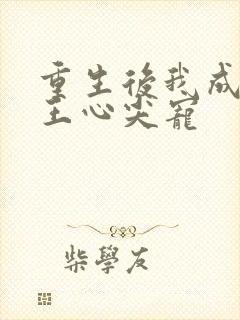 重生後我成
王心尖寵
柴學友